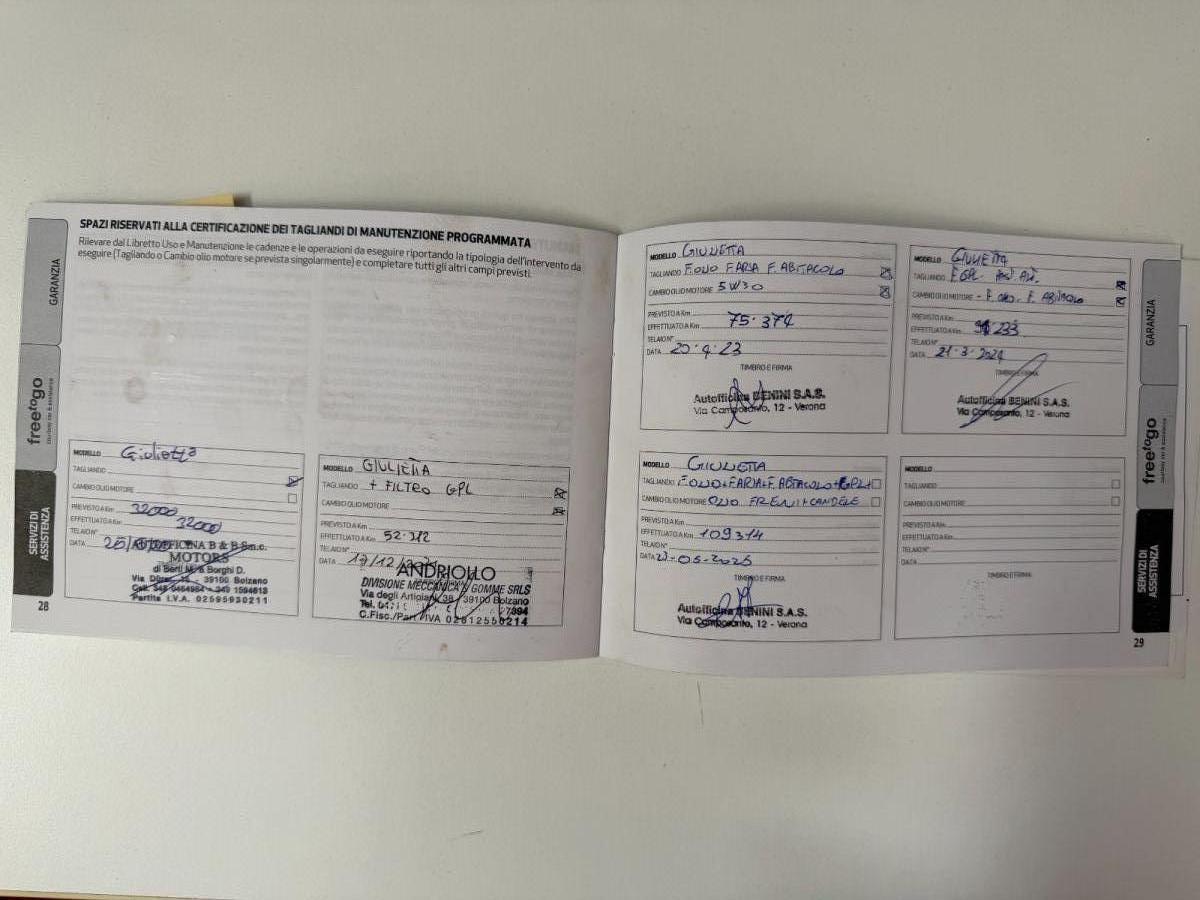 SPAZI RISERVATI ALLA CERTIFICAZIONE DEI TAGLIANDI DI MANUTENZIONE PROGRAMMATA
Rilevare dal Libretto Uso e Manutenzione le cadenze e le operazioni da eseguire riportando la tipologia dell'intervento da
eseguire (Tagliando o Cambio olio motore se prevista singolarmente) e completare tutti gli altri campi previsti.
GARANZIA
freetogo
SERVIZI DI
ASSISTENZA
28
MODELLO Giulietta
TAGLIANDO
CAMBIO OLIO MOTORE
PREVISTO A Km 32000
EFFETTUATO A Km 32000
TELAIO N°
DATA
AUTOFFICINA B & B S.n.c.
MOTORS
di Berti M. & Borghi D.
39100 Bolzano
Partita I.V.A. 02595930211
MODELLO GIULIETTA
TAGLIANDO + FILTRO GPL
CAMBIO OLIO MOTORE
PREVISTO A Km
EFFETTUATO A Km 52.312
TELAIO N°
DATA 17/12/
ANDRIOLLO
DIVISIONE MECCANICA / GOMME SRLS
Via degli Artigiani, 38 - 39100 Bolzano
Tel.
C.Fisc./Part. IVA 02812550214
MODELLO GIULIETTA
TAGLIANDO F.OLIO F.ARIA F. ABITACOLO
CAMBIO OLIO MOTORE 5W30
PREVISTO A Km
EFFETTUATO A Km 75.374
TELAIO N°
DATA 20.4.23
TIMBRO E FIRMA
Autofficina BENINI S.A.S.
Via Camposanto, 12 - Verona
MODELLO GIULIETTA
TAGLIANDO F GPL
CAMBIO OLIO MOTORE - F. OLIO. F. ABITACOLO
PREVISTO A Km
EFFETTUATO A Km 233
TELAIO N°
DATA 21-3-2024
TIMBRO E FIRMA
Autofficina BENINI S.A.S.
Via Camposanto, 12 - Verona
MODELLO GIULIETTA
TAGLIANDO F.OLIO+F.ARIA+F.ABITACOLO+GPL+
CAMBIO OLIO MOTORE OLIO FRENI+CANDELE
PREVISTO A Km
EFFETTUATO A Km 109314
TELAIO N°
DATA 05-2025
TIMBRO E FIRMA
Autofficina BENINI S.A.S.
Via Camposanto, 12 - Verona
MODELLO
TAGLIANDO
CAMBIO OLIO MOTORE
PREVISTO A Km
EFFETTUATO A Km
TELAIO N°
DATA
TIMBRO E FIRMA
GARANZIA
freetogo
SERVIZI DI
ASSISTENZA
29